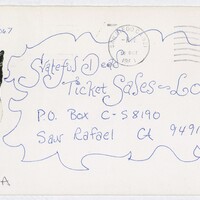 067
Grateful Dead
Ticket Sales - LO
P.O. Box C-S8190
San Rafael Ca 9491
A